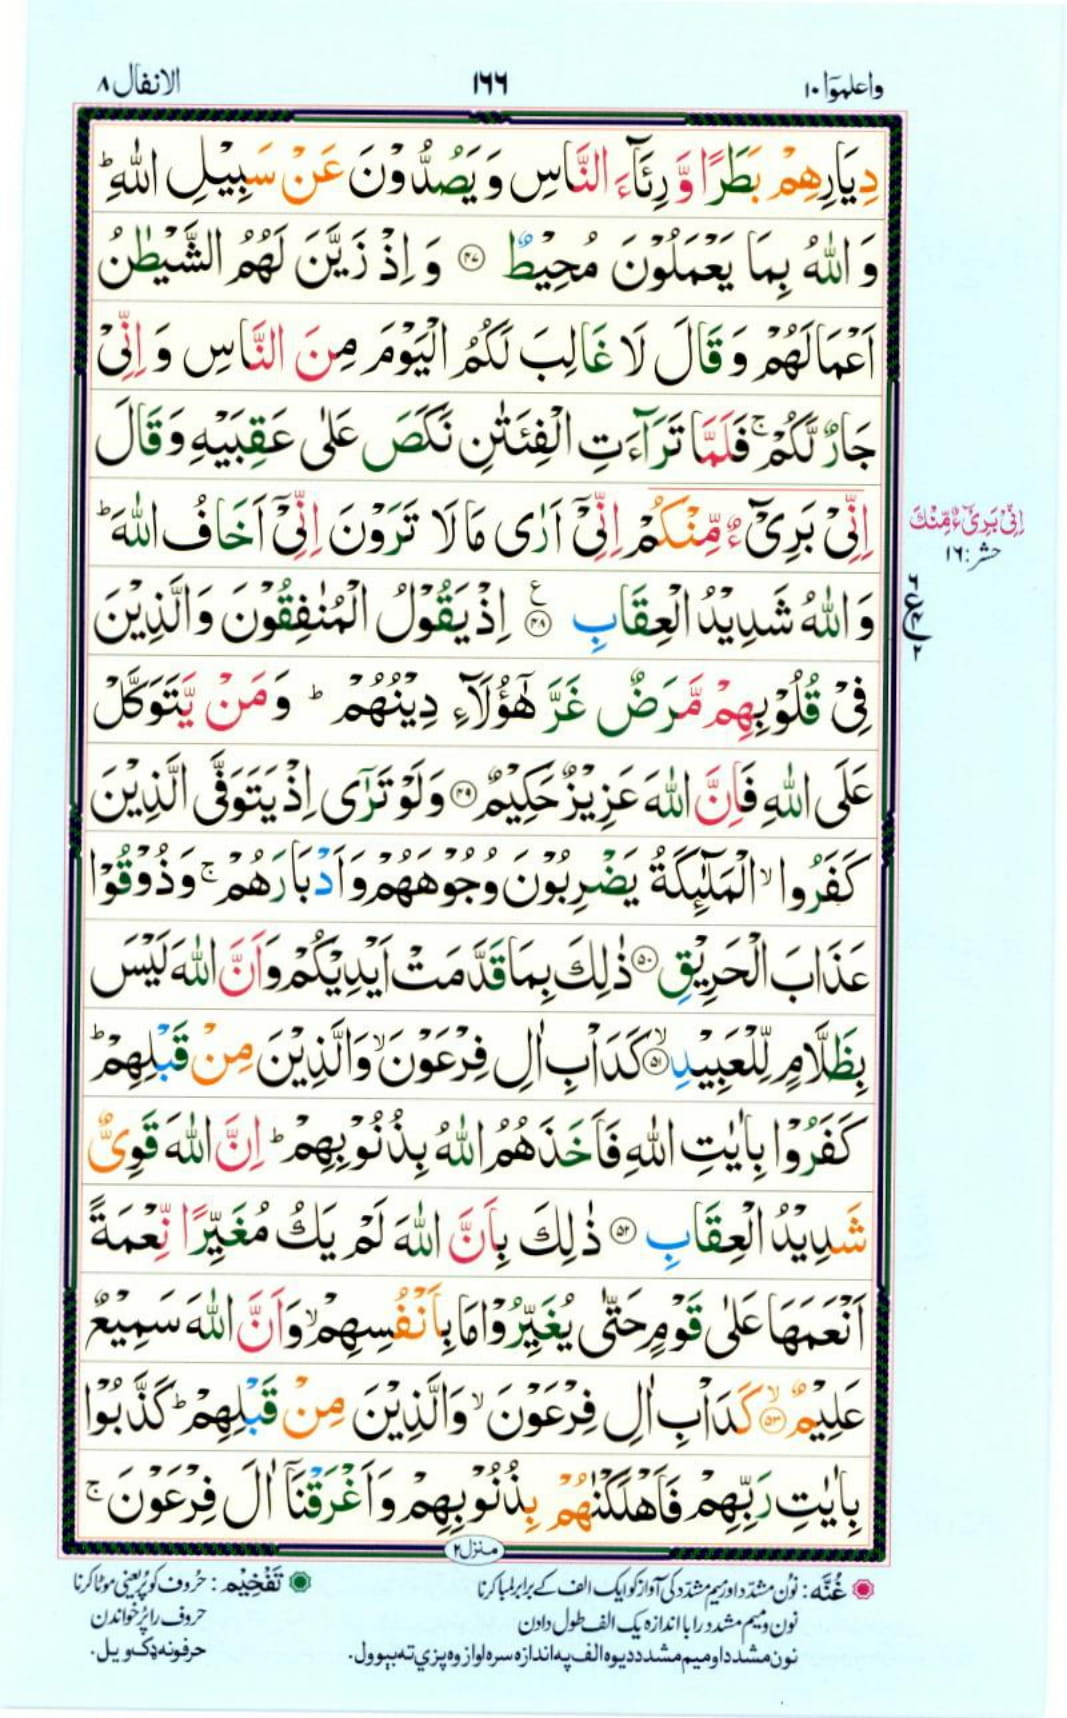 واعلموٓا ١٠
١٦٦
الانفال ٨
دِيَارِهِمْ بَطَرًا وَّ رِئَآءَ النَّاسِ وَ يَصُدُّوْنَ عَنْ سَبِيْلِ اللّٰهِ ؕ
وَ اللّٰهُ بِمَا يَعْمَلُوْنَ مُحِيْطٌ ﴿۴۷﴾ وَ اِذْ زَيَّنَ لَهُمُ الشَّيْطٰنُ
اَعْمَالَهُمْ وَ قَالَ لَا غَالِبَ لَكُمُ الْيَوْمَ مِنَ النَّاسِ وَ اِنِّيْ
جَارٌ لَّكُمْ ۚ فَلَمَّا تَرَآءَتِ الْفِئَتٰنِ نَكَصَ عَلٰى عَقِبَيْهِ وَ قَالَ
اِنِّيْ بَرِيْٓءٌ مِّنْكُمْ اِنِّيْٓ اَرٰى مَا لَا تَرَوْنَ اِنِّيْٓ اَخَافُ اللّٰهَ ؕ
وَ اللّٰهُ شَدِيْدُ الْعِقَابِ ﴿۴۸﴾ ع اِذْ يَقُوْلُ الْمُنٰفِقُوْنَ وَ الَّذِيْنَ
فِيْ قُلُوْبِهِمْ مَّرَضٌ غَرَّ هٰٓؤُلَآءِ دِيْنُهُمْ ؕ وَ مَنْ يَّتَوَكَّلْ
عَلَى اللّٰهِ فَاِنَّ اللّٰهَ عَزِيْزٌ حَكِيْمٌ ﴿۴۹﴾ وَ لَوْ تَرٰٓى اِذْ يَتَوَفَّى الَّذِيْنَ
كَفَرُوا ۙ الْمَلٰٓئِكَةُ يَضْرِبُوْنَ وُجُوْهَهُمْ وَ اَدْبَارَهُمْ ۚ وَ ذُوْقُوْا
عَذَابَ الْحَرِيْقِ ﴿۵۰﴾ ذٰلِكَ بِمَا قَدَّمَتْ اَيْدِيْكُمْ وَ اَنَّ اللّٰهَ لَيْسَ
بِظَلَّامٍ لِّلْعَبِيْدِ ﴿۵۱﴾ ۙ كَدَاْبِ اٰلِ فِرْعَوْنَ ۙ وَ الَّذِيْنَ مِنْ قَبْلِهِمْ ؕ
كَفَرُوْا بِاٰيٰتِ اللّٰهِ فَاَخَذَهُمُ اللّٰهُ بِذُنُوْبِهِمْ ؕ اِنَّ اللّٰهَ قَوِيٌّ
شَدِيْدُ الْعِقَابِ ﴿۵۲﴾ ذٰلِكَ بِاَنَّ اللّٰهَ لَمْ يَكُ مُغَيِّرًا نِّعْمَةً
اَنْعَمَهَا عَلٰى قَوْمٍ حَتّٰى يُغَيِّرُوْا مَا بِاَنْفُسِهِمْ ۙ وَ اَنَّ اللّٰهَ سَمِيْعٌ
عَلِيْمٌ ﴿۵۳﴾ ۙ كَدَاْبِ اٰلِ فِرْعَوْنَ ۙ وَ الَّذِيْنَ مِنْ قَبْلِهِمْ ؕ كَذَّبُوْا
بِاٰيٰتِ رَبِّهِمْ فَاَهْلَكْنٰهُمْ بِذُنُوْبِهِمْ وَ اَغْرَقْنَآ اٰلَ فِرْعَوْنَ ۚ
اِنِّيْ بَرِيْٓءٌ مِّنْكَ
حشر: ١٦
٢ ع ٤ ٢
منزل ٢
غُنَّه : نُون مشدّد اور میم مشدّد کی آواز کو ایک الف کے برابر لمبا کرنا
نون و میم مشدد را با اندازه یک الف طول دادن
نون مشدد او میم مشدد دیوه الف په اندازه سره اواز وه پزي ته بېوول.
تَفْخِيْم : حُروف کو پُر یعنی موٹا کرنا
حروف را پُر خواندن
حرفونه ډک ویل.